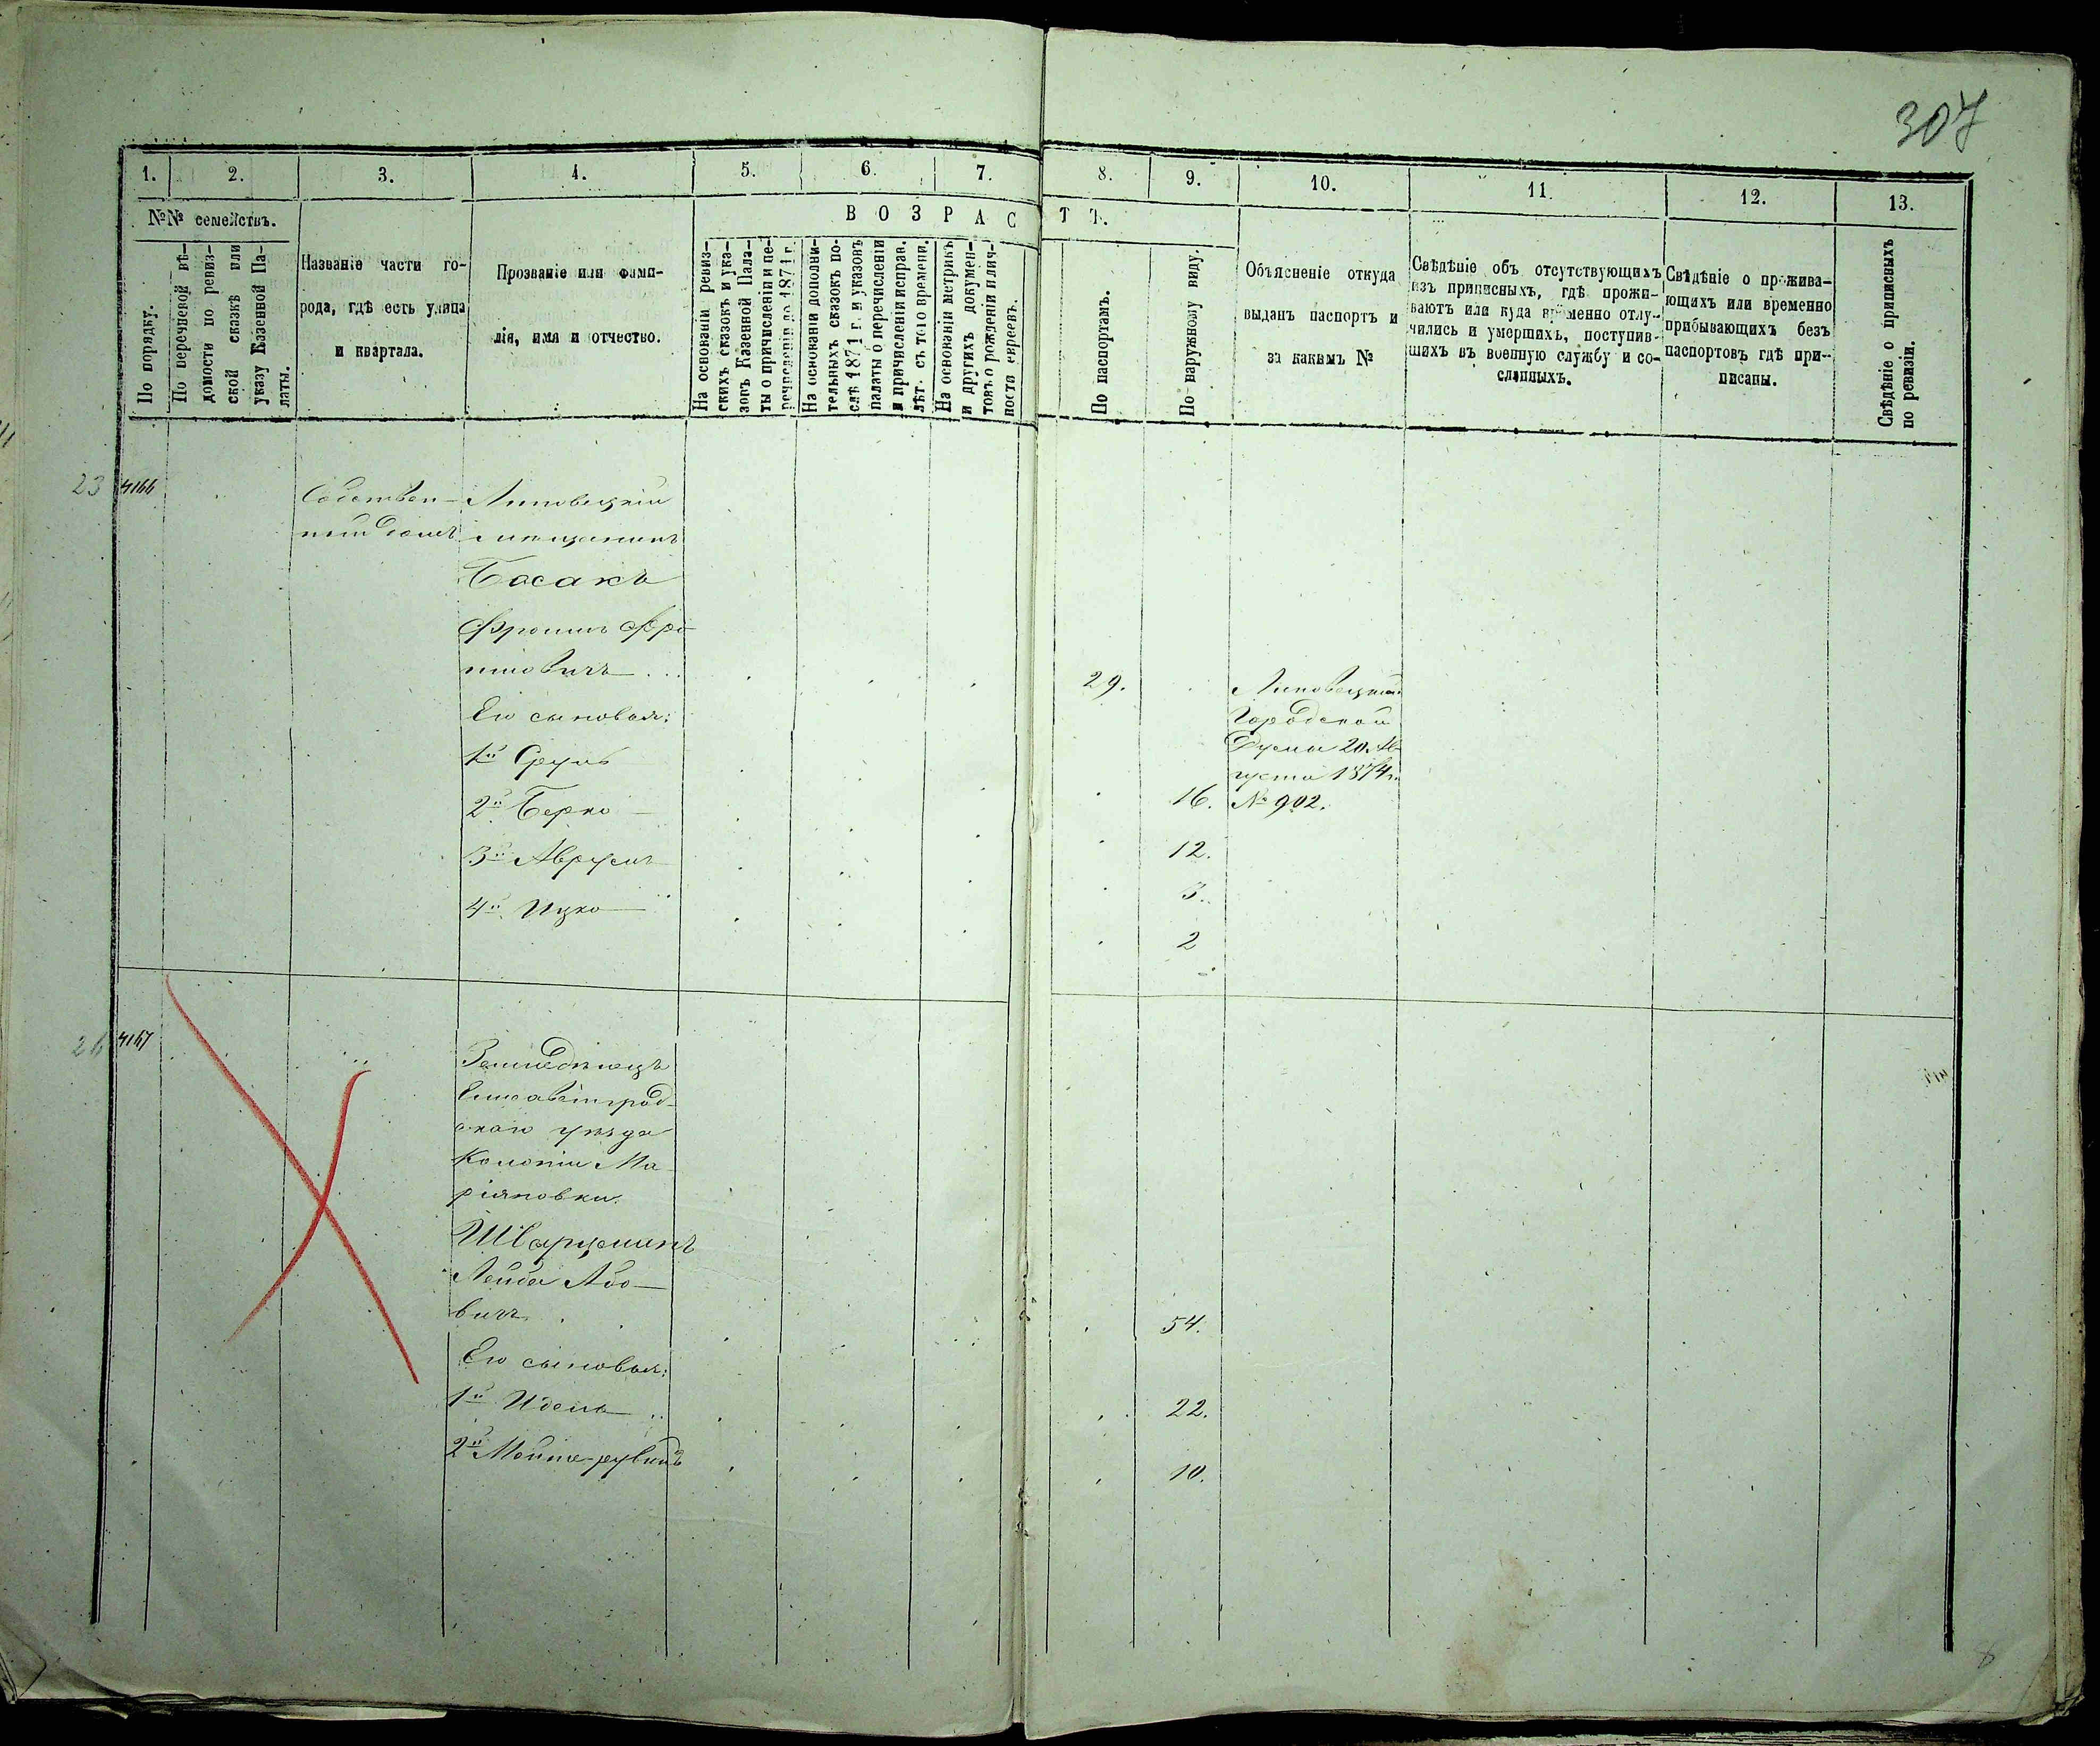 307
1. 2. 3. 4. 5. 6. 7. 8. 9. 10. 11. 12. 13.
№№ семействъ.
ВОЗРАСТЪ.
По порядку.
По перечневой вѣ-
домости по ревиз-
ской сказкѣ или
указу Казенной Па-
латы.
Названіе части го-
рода, гдѣ есть улица
и квартала.
Прозваніе или фами-
лія, имя и отчество.
На основаніи ревиз-
скихъ сказокъ и ука-
зовъ Казенной Пала-
ты о причисленіи и пе-
речисленіи до 1871 г.
На основаніи дополни-
тельныхъ сказокъ по-
слѣ 1871 г. и указовъ
палаты о перечисленіи
и причисленіи исправ.
лѣт. съ того времени.
На основаніи метрикъ
и другихъ докумен-
товъ о рожденіи и лич-
ности евреевъ.
По паспортамъ.
По наружному виду.
Объясненіе откуда
выданъ паспортъ и
за какимъ №
Свѣдѣніе объ отсутствующихъ
изъ приписныхъ, гдѣ прожи-
ваютъ или куда временно отлу-
чились и умершихъ, поступив-
шихъ въ военную службу и со-
сланныхъ.
Свѣдѣніе о прожива-
ющихъ или временно
прибывающихъ безъ
паспортовъ гдѣ при-
писаны.
Свѣдѣніе о приписныхъ
по ревизіи.
23 4166
Собствен-
ный домъ
Липовецкій
мѣщанинъ
Басакъ
Фроимъ Фро
имовичъ
29.
Его сыновья:
1й Сруль 16.
2й Берко 12.
3й Аврумъ 5.
4й Ицко 2
Липовецкой
Городской
Думы 20. Ав-
густа 1874 г.
№ 902.
4167
Земледѣлецъ
Елисаветград-
скаго уѣзда
Колоніи Ма-
ріяновки.
Шварцманъ
Лейба Або-
вичъ 54.
Его сыновья:
1й Идель 22.
2й 10.